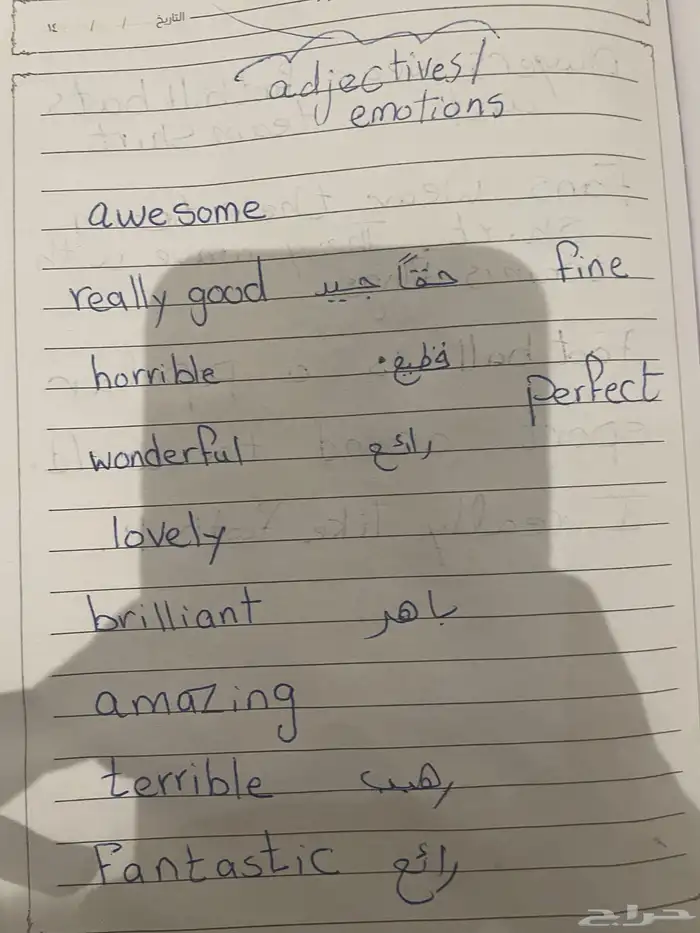 التاريخ / / ١٤
adjectives/
emotions
awesome
really good حقاً جيد fine
horrible فظيع
perfect
wonderful رائع
lovely
brilliant باهر
amazing
terrible رهيب
Fantastic رائع
حراج